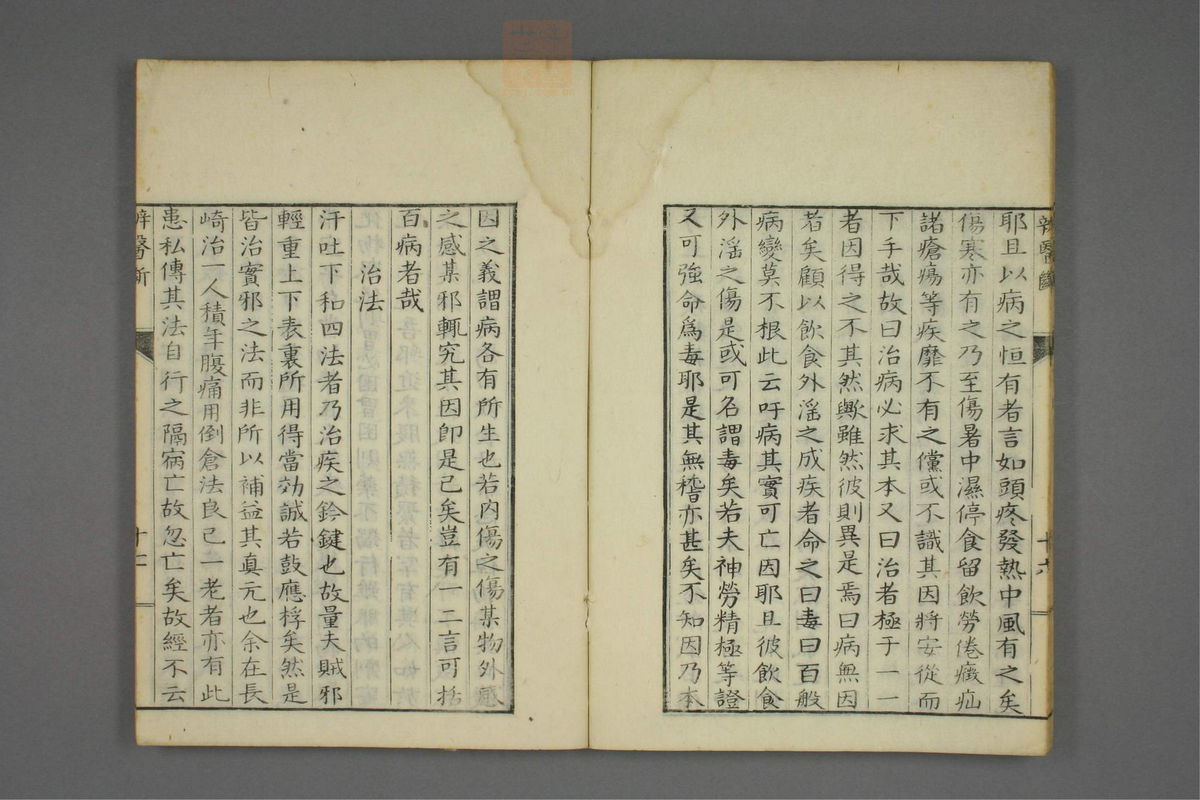 耶且以病之恒有者言如頭疼發熱中風有之矣
傷寒亦有之乃至傷暑中濕停食留飲勞倦癥疝
諸瘡瘍等疾靡不有之儻或不識其因將安從而
下手哉故曰治病必求其本又曰治者極于一一
者因得之不其然歟雖然彼則異是焉曰病無因
者矣顧以飲食外淫之成疾者命之曰毒曰百般
病變莫不根此云吁病其實可亡因耶且彼飲食
外淫之傷是或可名謂毒矣若夫神勞精極等證
又可強命爲毒耶是其無稽亦甚矣不知因乃本
因之義謂病各有所生也若内傷之傷某物外感
之感某邪輒究其因即是已矣豈有一二言可括
百病者哉
治法
汗吐下和四法者乃治疾之鈐鍵也故量夫賊邪
輕重上下表裏所用得當効誠若鼓應桴矣然是
皆治實邪之法而非所以補益其真元也余在長
崎治一人積年腹痛用倒倉法良已一老者亦有此
患私傳其法自行之隔病亡故忽亡矣故經不云
辨醫斷